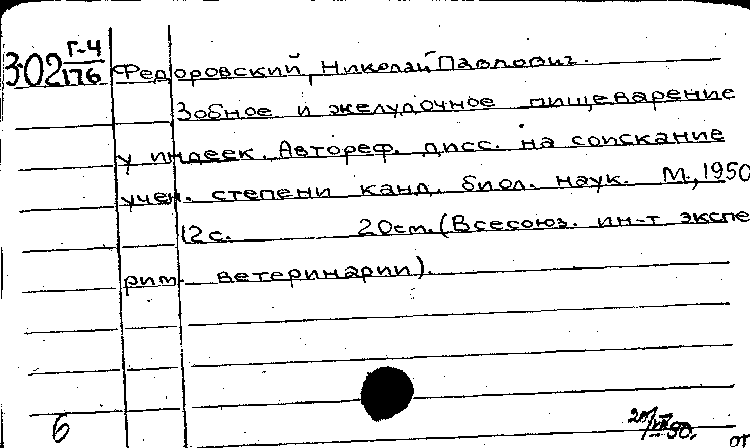 302 Г-4/176 Федоровский, Николай Павлович.
Зобное и желудочное пищеварение
у индеек. Автореф. дисс. на соискание
учен. степени канд. биол. наук. М., 1950
12 с. 20 см. (Всесоюз. ин-т экспе
рим. ветеринарии).
6